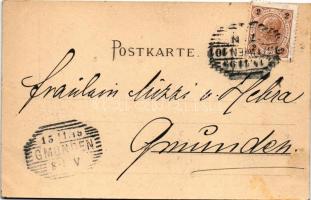 POSTKARTE.
Fräulein Mizzi v. Hebra
Gmunden.
GMUNDEN